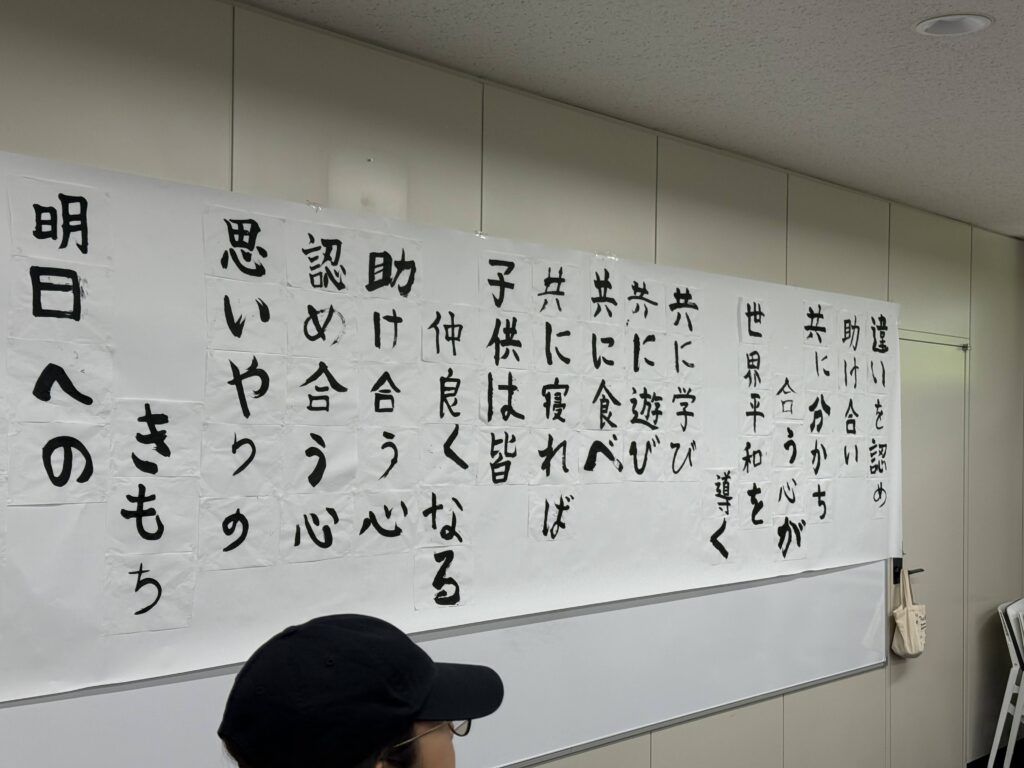 違いを認め
助け合い
共に分かち
合う心が
世界平和を
導く
共に学び
共に遊び
共に食べ
共に寝れば
子供は皆
仲良くなる
助け合う心
認め合う心
思いやりの
きもち
明日への